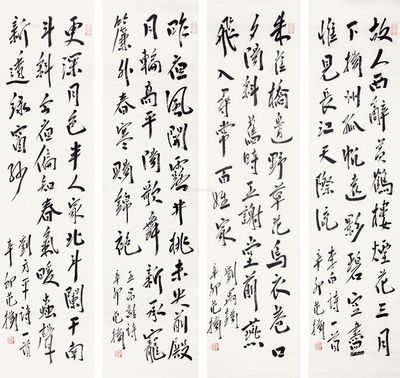 故人西辭黃鶴樓煙花三月
下揚州孤帆遠影碧空盡
惟見長江天際流
李白詩一首
辛卯范揚
朱雀橋邊野草花烏衣巷口
夕陽斜舊時王謝堂前燕
飛入尋常百姓家
劉禹錫
辛卯范揚
昨夜風開露井桃未央前殿
月輪高平陽歌舞新承寵
簾外春寒賜錦袍
王昌齡詩
辛卯范揚
更深月色半人家北斗闌干南
斗斜今夜偏知春氣暖蟲聲
新透綠窗紗
劉方平詩一首
辛卯范揚